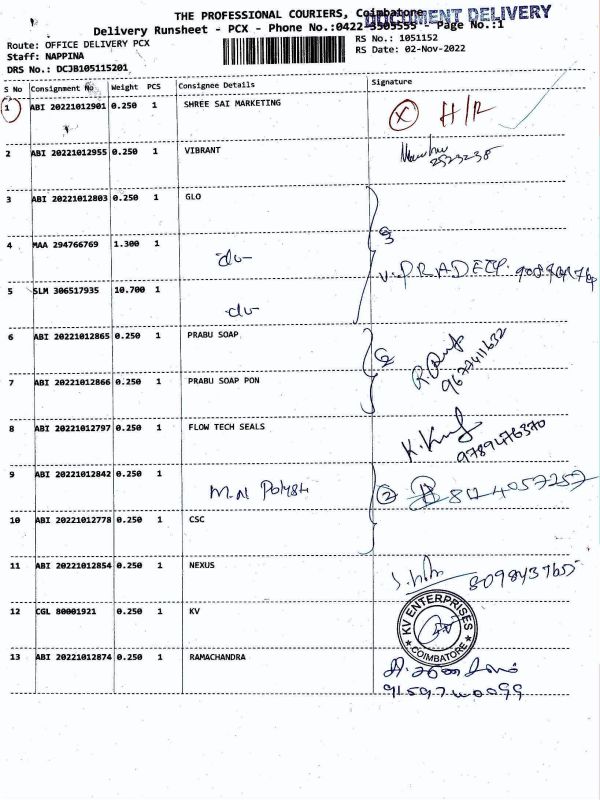 THE PROFESSIONAL COURIERS, Coimbatore
DOCUMENT DELIVERY
Delivery Runsheet - PCX - Phone No.:0422-3505555 - Page No.:1
Route: OFFICE DELIVERY PCX
RS No.: 1051152
Staff: NAPPINA
RS Date: 02-Nov-2022
DRS No.: DCJB105115201
S No Consignment No Weight PCS Consignee Details Signature
1 ABI 20221012901 0.250 1 SHREE SAI MARKETING X H/R
2 ABI 20221012955 0.250 1 VIBRANT
3 ABI 20221012803 0.250 1 GLO
4 MAA 294766769 1.300 1 do-
3
V. PRADEEP.
5 SLM 306517935 10.700 1 do-
6 ABI 20221012865 0.250 1 PRABU SOAP
9677411632
7 ABI 20221012866 0.250 1 PRABU SOAP PON
8 ABI 20221012797 0.250 1 FLOW TECH SEALS
9789476370
9 ABI 20221012842 0.250 1 M.N Polysh 2 8124057257
10 ABI 20221012778 0.250 1 CSC
11 ABI 20221012854 0.250 1 NEXUS
12 CGL 80001921 0.250 1 KV
KV ENTERPRISES
COIMBATORE
13 ABI 20221012874 0.250 1 RAMACHANDRA